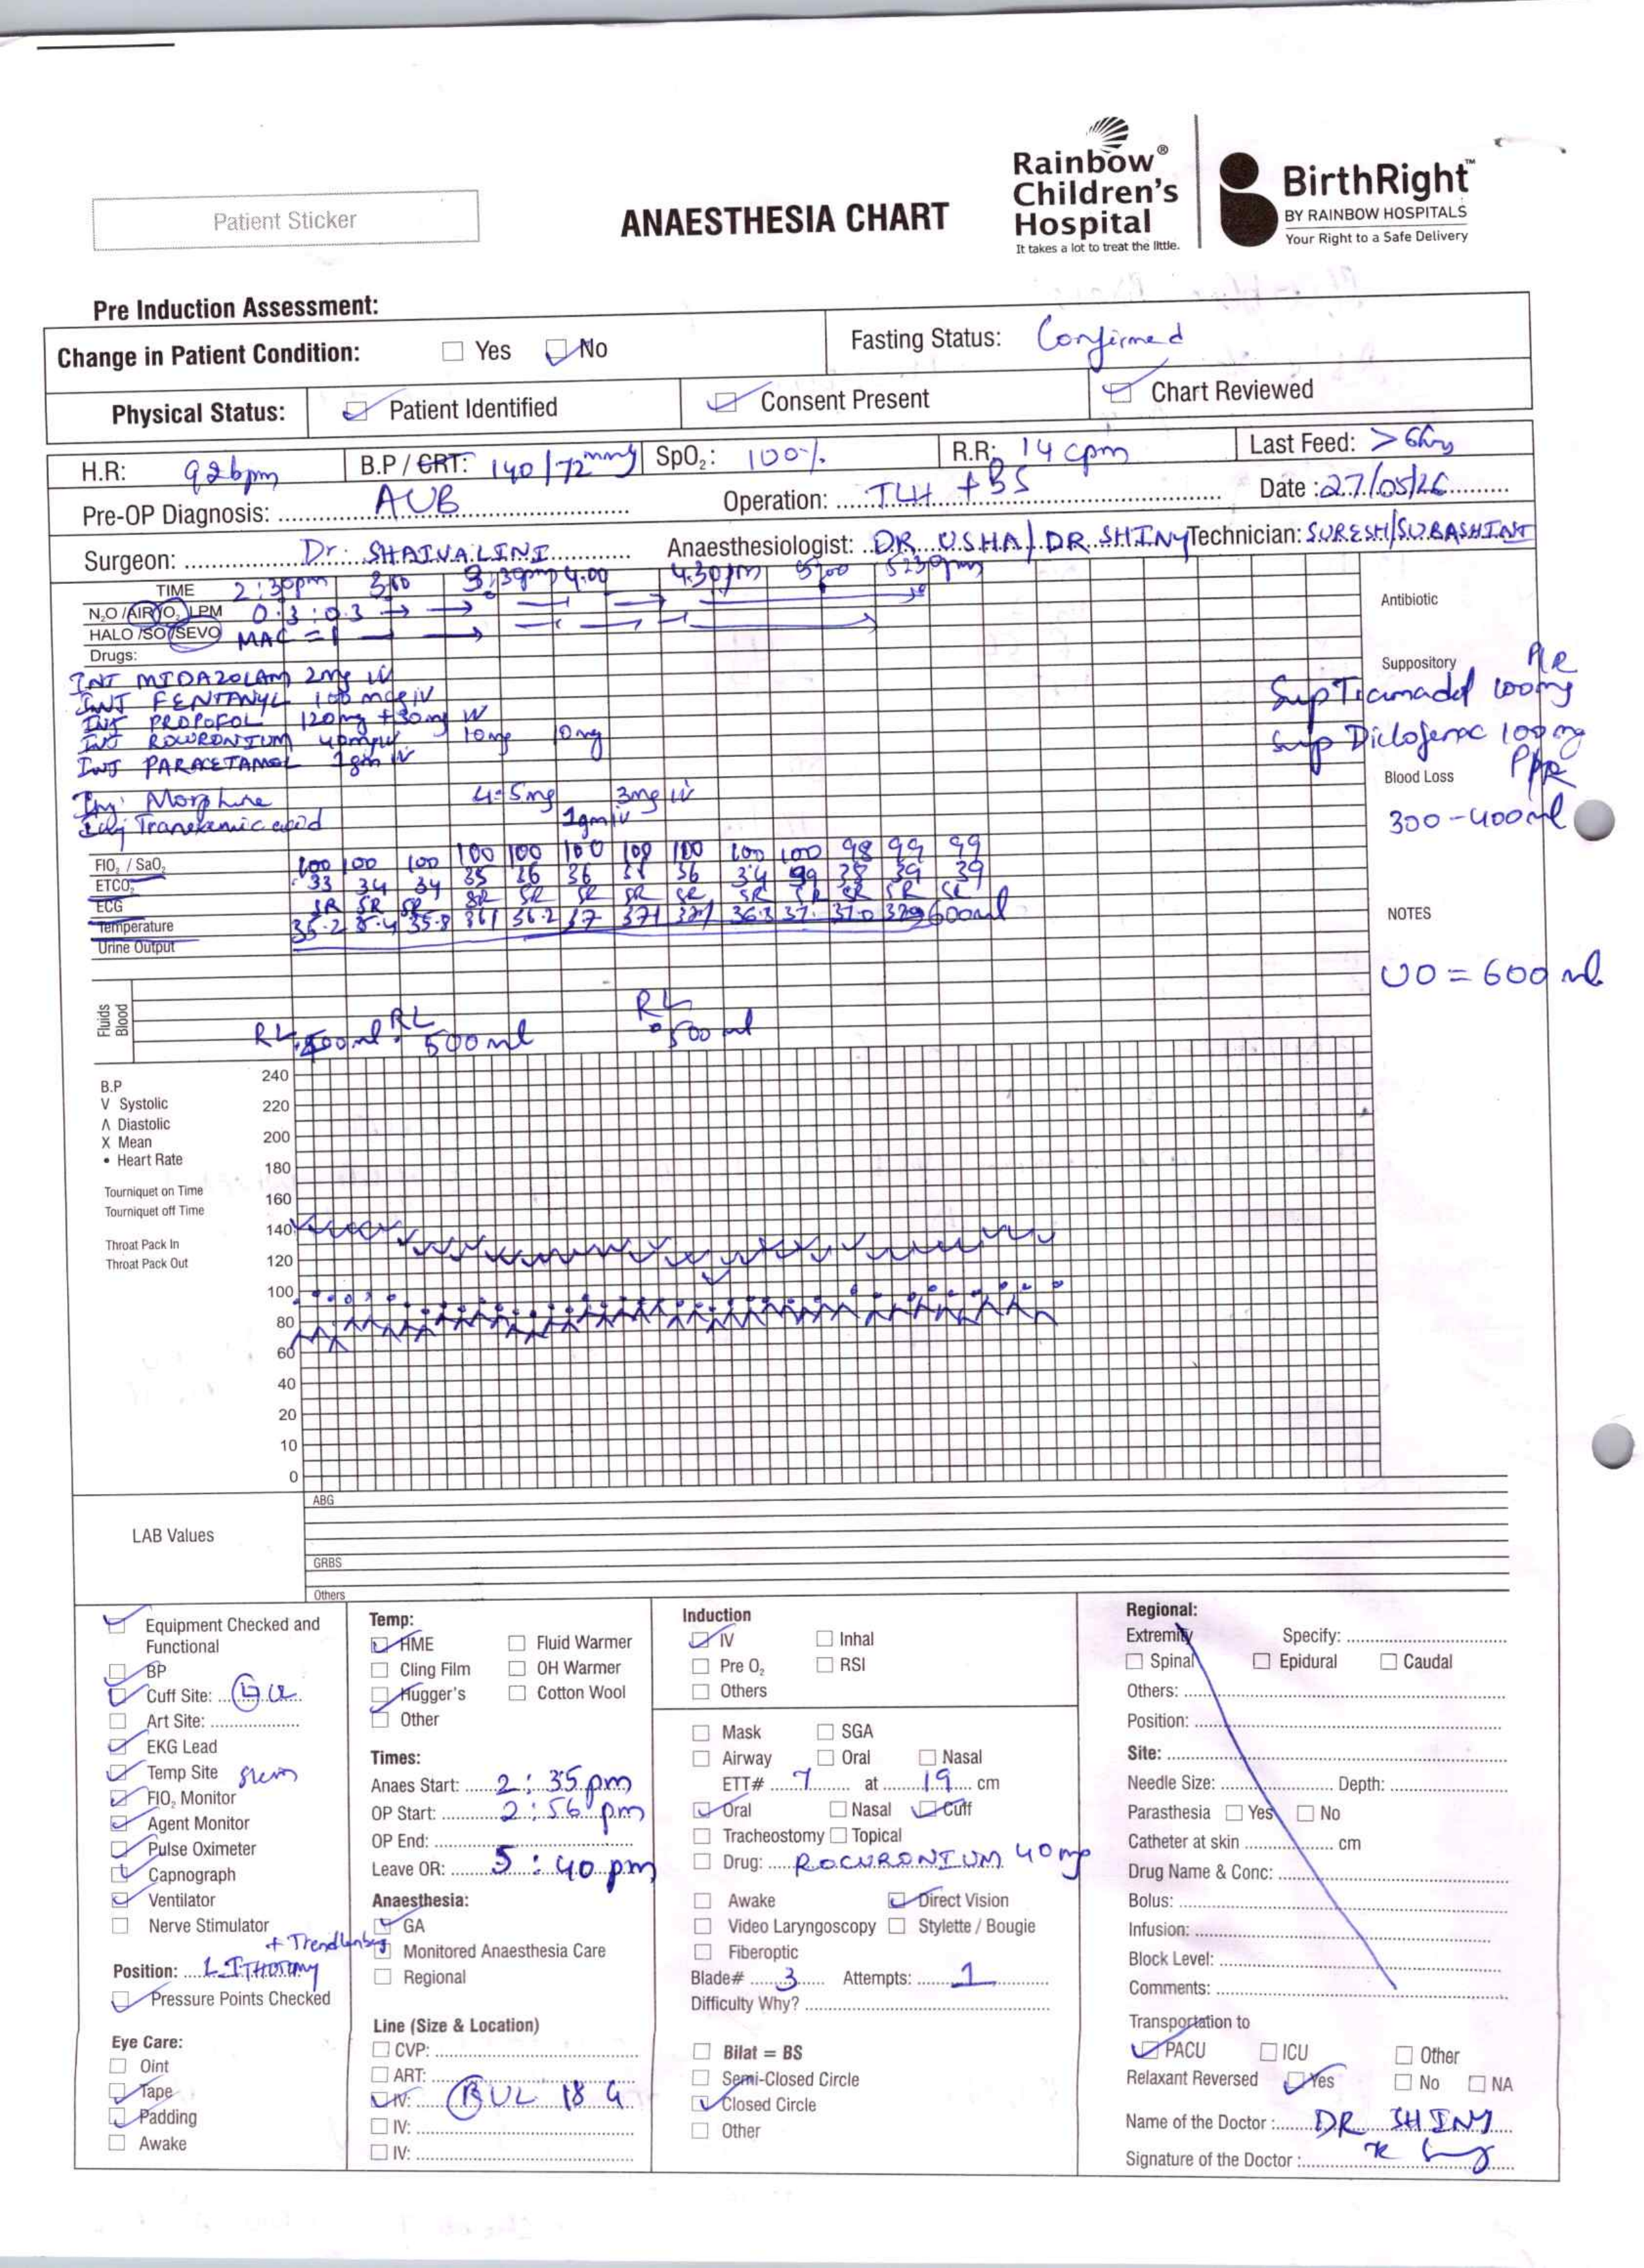 Patient Sticker
ANAESTHESIA CHART
Rainbow®
Children's
Hospital
It takes a lot to treat the little.
BirthRight™
BY RAINBOW HOSPITALS
Your Right to a Safe Delivery
Pre Induction Assessment:
Change in Patient Condition: Yes No Fasting Status: Confirmed
Physical Status: Patient Identified Consent Present Chart Reviewed
H.R: 92bpm B.P / CRT: 140/72mmg SpO₂: 100% R.R: 14 cpm Last Feed: >6hrs
Pre-OP Diagnosis: AUB Operation: TLH + BS Date : 27/05/26
Surgeon: Dr. Anaesthesiologist: DR USHA/ DR SHINY Technician: SURESH/SUBASHINI
TIME 2:30pm 3:00 3:30pm 4.00 4.30pm 5:00 5:30pm
N₂O /AIR/O₂ LPM 0.3:0.3
HALO /SO/SEVO MAC = 1
Drugs:
INJ MIDAZOLAM 2mg IV
INJ FENTANYL 100 mcg iv
INJ PROPOFOL 120mg + 30mg IV
INJ ROCURONIUM 40mg IV 10mg 10mg
INJ PARACETAMOL 1gm IV
Inj. Morphine 4.5mg 3mg IV
Inj Tranexamic acid 1gm iv
Antibiotic
Suppository P/R
Sup Tramadol 100mg
Sup Diclofenac 100mg
Blood Loss P/R
300-400ml
FIO₂ / SaO₂ 100 100 100 100 100 100 100 100 100 100 98 99 99
ETCO₂ 33 34 34 35 36 36 36 34 39 39
ECG SR SR SR SR SR SR SR SR SR SR SR SR SR
Temperature 35.2 35.4 35.8 36.1 36.2 37 37.1 37.1 36.8 37. 37.0 600ml
Urine Output
NOTES
UO = 600 ml
Fluids
Blood
RL 500ml. RL 500ml RL 500 ml
B.P
V Systolic
Λ Diastolic
X Mean
• Heart Rate
Tourniquet on Time
Tourniquet off Time
Throat Pack In
Throat Pack Out
240
220
200
180
160
140
120
100
80
60
40
20
10
0
LAB Values
ABG
GRBS
Others
Equipment Checked and
Functional
BP
Cuff Site:
Art Site:
EKG Lead
Temp Site
FIO₂ Monitor
Agent Monitor
Pulse Oximeter
Capnograph
Ventilator
Nerve Stimulator
+ Trendlenberg
Position: LITHOTOMY
Pressure Points Checked
Eye Care:
Oint
Tape
Padding
Awake
Temp:
HME Fluid Warmer
Cling Film OH Warmer
Hugger's Cotton Wool
Other
Times:
Anaes Start: 2:35 pm
OP Start: 2:56 pm
OP End:
Leave OR: 5:40 pm
Anaesthesia:
GA
Monitored Anaesthesia Care
Regional
Line (Size & Location)
CVP:
ART:
IV: (R) UL 18 G
IV:
IV:
Induction
IV Inhal
Pre O₂ RSI
Others
Mask SGA
Airway Oral Nasal
ETT# 7 at 19 cm
Oral Nasal Cuff
Tracheostomy Topical
Drug: ROCURONIUM 40mg
Awake Direct Vision
Video Laryngoscopy Stylette / Bougie
Fiberoptic
Blade# 3 Attempts: 1
Difficulty Why?
Bilat = BS
Semi-Closed Circle
Closed Circle
Other
Regional:
Extremity Specify:
Spinal Epidural Caudal
Others:
Position:
Site:
Needle Size: Depth:
Parasthesia Yes No
Catheter at skin cm
Drug Name & Conc:
Bolus:
Infusion:
Block Level:
Comments:
Transportation to
PACU ICU Other
Relaxant Reversed Yes No NA
Name of the Doctor : DR SHINY
Signature of the Doctor :